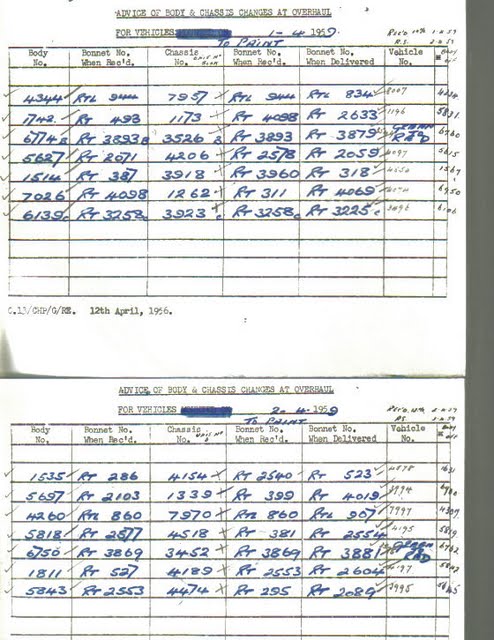 ADVICE OF BODY & CHASSIS CHANGES AT OVERHAUL
FOR VEHICLES 1-4 1959
TO PAINT
Body No. Bonnet No. When Rec'd. Chassis No. Bonnet No. When Rec'd. Bonnet No. When Delivered Vehicle No.
4344 RTL 944 7957 RTL 944 RTL 834 8007
1742 RT 493 1173 RT 4098 RT 2633 1196 5831
6774 RT 3893 3526 RT 3893 RT 3879 GERMAN RAD
5627 RT 2071 4206 RT 2578 RT 2059 5615
1514 RT 387 3918 RT 3960 RT 318 1567
7026 RT 4098 1262 RT 311 RT 4069
6139c RT 3258c 3923c RT 3258c RT 3225c
C.13/CHP/G/RE. 12th April, 1956.
ADVICE OF BODY & CHASSIS CHANGES AT OVERHAUL
FOR VEHICLES 2-4-1959
TO PAINT
Body No. Bonnet No. When Rec'd. Chassis No. Bonnet No. When Rec'd. Bonnet No. When Delivered Vehicle No.
1535 RT 286 4154 RT 2540 RT 523 4578
5697 RT 2103 1339 RT 399 RT 4019
4260 RTL 860 7970 RTL 860 RTL 907 7997
5818 RT 2677 4518 RT 381 RT 2554 4195 5819
6756 RT 3869 3452 RT 3869 RT 3881 RAD
1811 RT 527 4189 RT 2553 RT 2604 4197
5843 RT 2553 4474 RT 295 RT 2089 3995